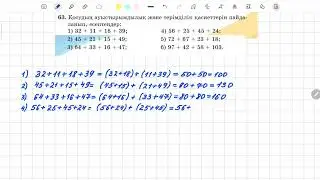 63. Қосудың ауыстырымдылық және терімділік қасиеттерін пайда-
ланып, есептеңдер:
1) 32 + 11 + 18 + 39; 4) 56 + 25 + 45 + 24;
2) 45 + 21 + 15 + 49; 5) 72 + 67 + 23 + 18;
3) 64 + 33 + 16 + 47; 6) 97 + 42 + 58 + 103.
1) 32+11+18+39 = (32+18)+(11+39)=50+50=100
2) 45+21+15+49= (45+15)+(21+49)=60+70=130
3) 64+33+16+47=(64+16)+(33+47)=80+80=160
4) 56+25+45+24=(56+24)+(25+45)=56+